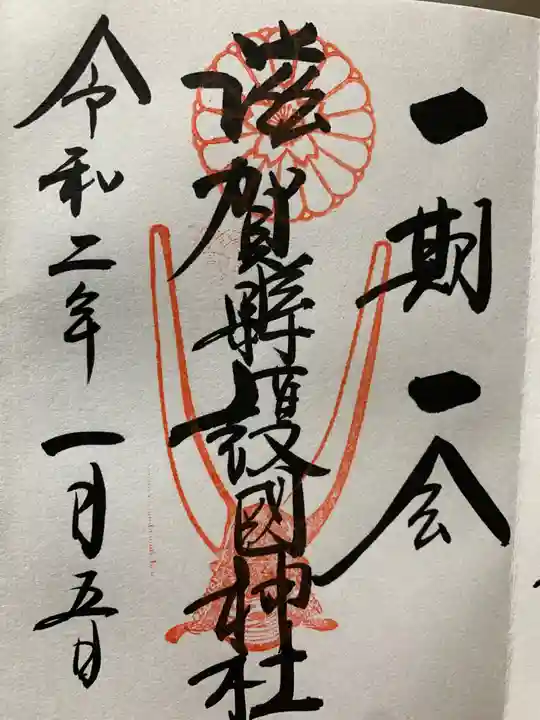 一期一会
滋賀縣護國神社
令和二年一月五日